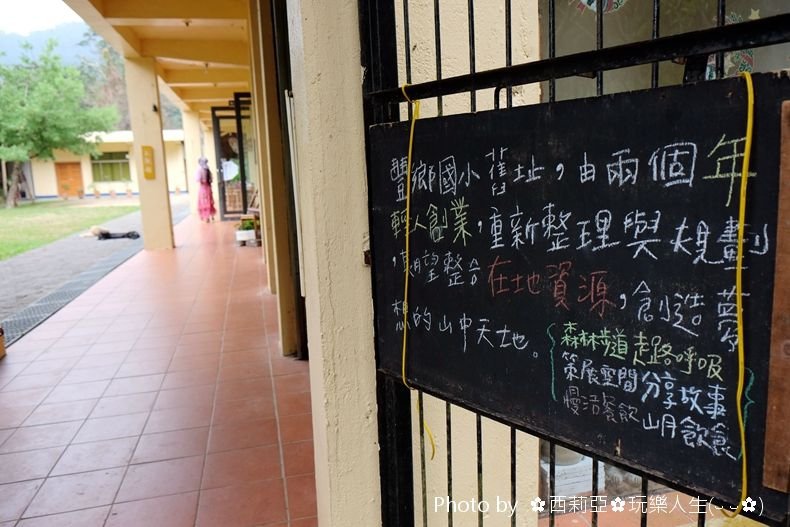 豐鄉國小舊址，由兩個年
輕人創業，重新整理與規劃
，期望整合在地資源，創造夢
想的山中天地。
森林步道走路呼吸
策展空間分享故事
慢活餐飲山月飲食
Photo by ✿西莉亞✿玩樂人生(◡‿◡✿)